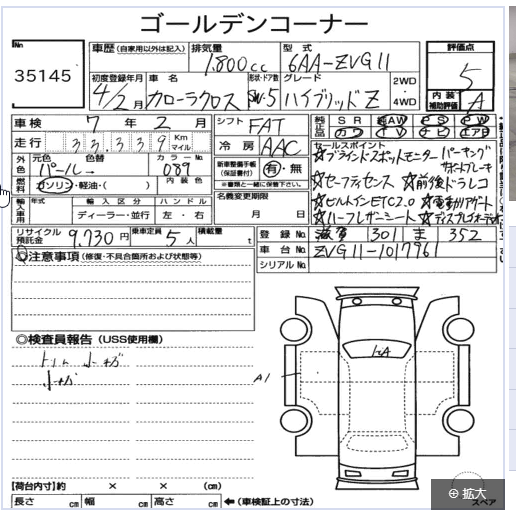 ゴールデンコーナー
No. 35145
車歴 (自家用以外は記入) 排気量 1,800cc 型式 6AA-ZVG11 評価点 5
初度登録年月 4/2月 車名 カローラクロス 形状・ドア数 SW・5 グレード ハイブリッドZ 2WD・4WD 内装補助評価 A
車検 7年2月 シフト FAT 純正品 SR 純AW PS PW
カワ TV ナビ エアB
走行 33,339 Kmマイル 冷房 AAC セールスポイント
☆ブラインドスポットモニター パーキングサポートブレーキ
外色 元色 パール 色替→ カラーNo. 089 新車整備手帳(保証書付) 有・無 ☆セーフティセンス ☆前後ドラレコ
燃料 ガソリン・軽油・( ) 内装色 ※書類と一緒に保管下さい ☆ビルトインETC2.0 ☆電動リアゲート
輸入車用 年式 輸入区分 ディーラー・並行 ハンドル 左・右 名義変更期限 月 日 ☆ハーフレザーシート
リサイクル預託金 9,730円 乗車定員 5人 積載量 t 登録No. 滋賀 301 ま 352
車台No. ZVG11-1017961
シリアルNo.
注意事項 (修復・不具合箇所および状態等)
◎検査員報告 (USS使用欄)
トリム小キズ
小キズ
ヒA
A1
【荷台内寸】約 × × (cm)
長さ cm 幅 cm 高さ cm ←(車検証上の寸法)
スペア
拡大